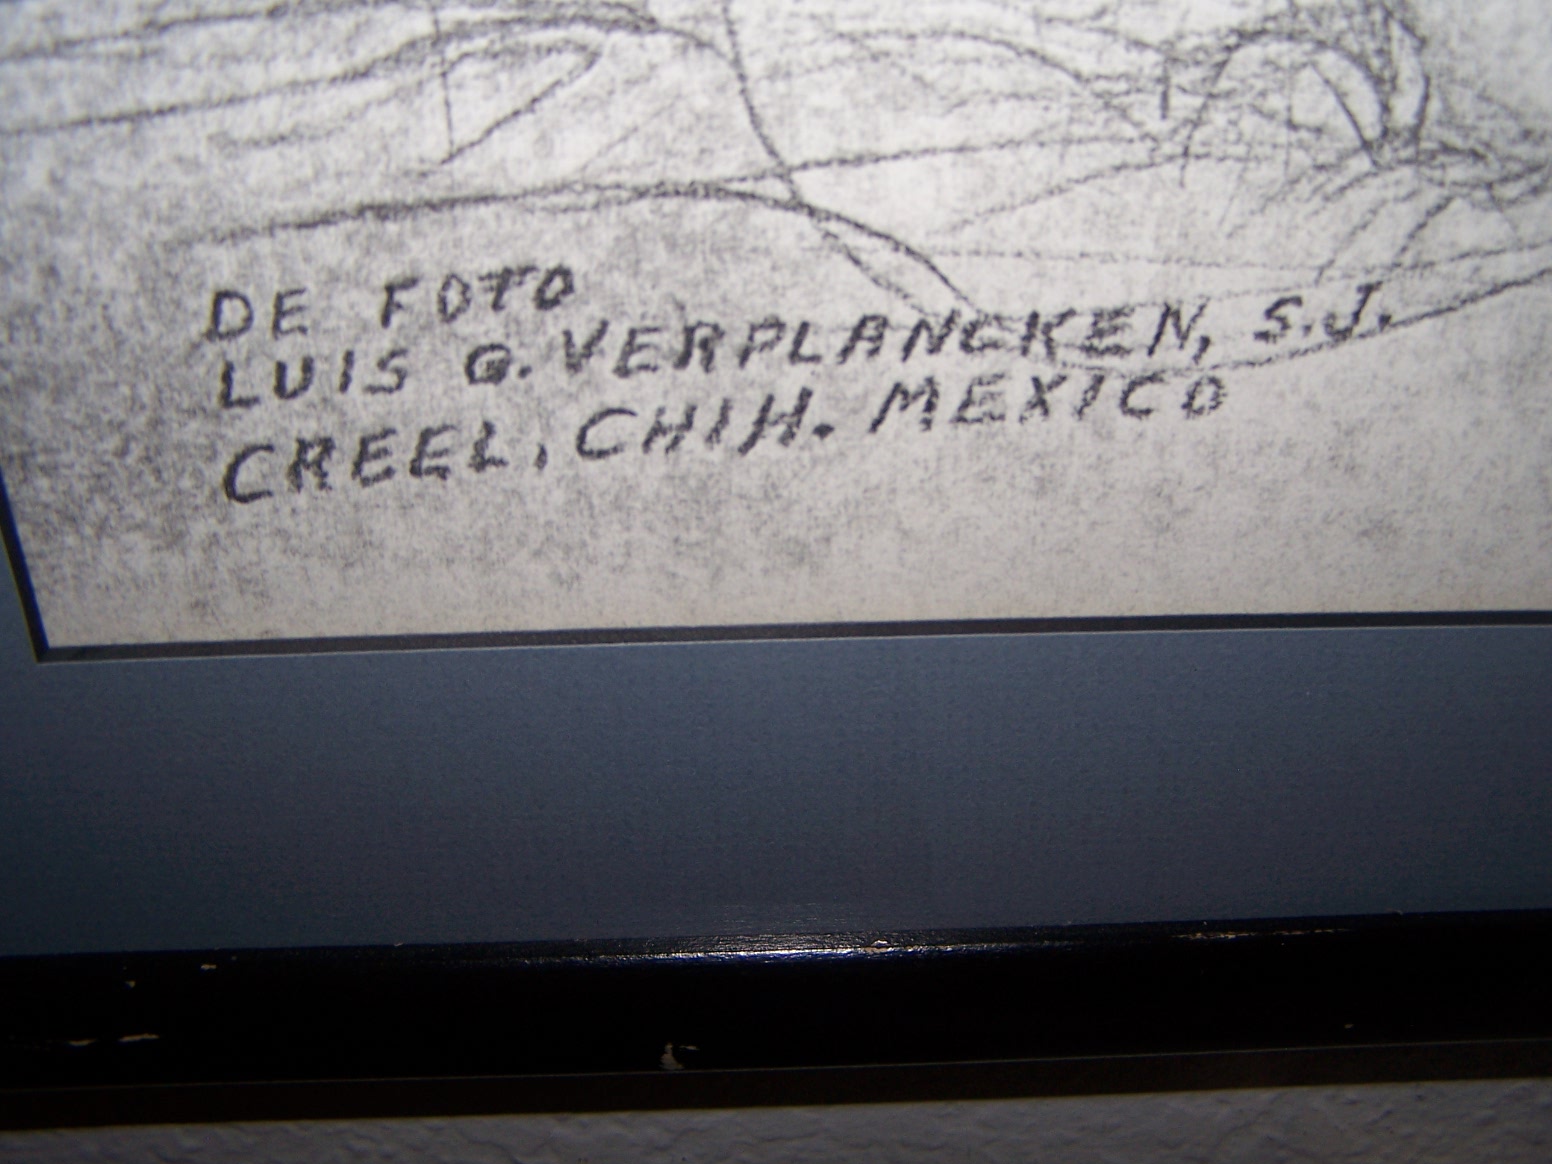 DE FOTO
LUIS G. VERPLANCKEN, S.J.
CREEL, CHIH. MEXICO